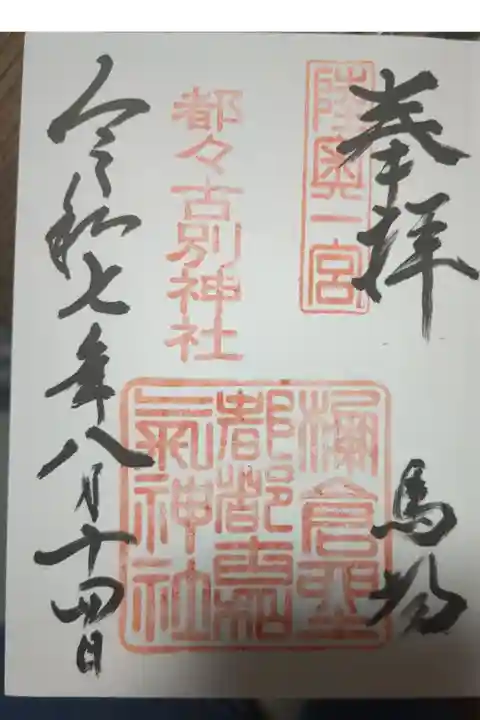 奉拝
馬場
陸奥一宮
都々古別神社
棚倉
都都古
氣神社
令和七年八月十四日